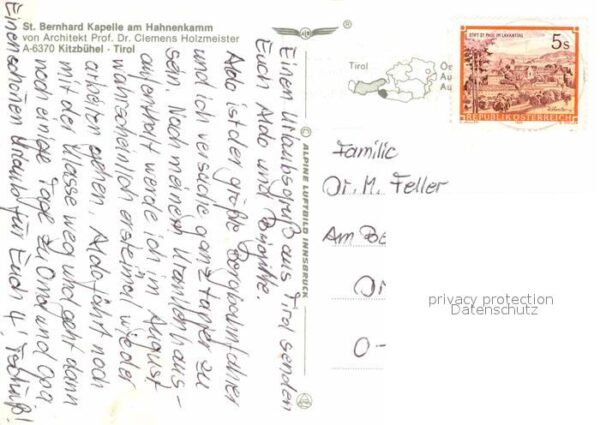 St. Bernhard Kapelle am Hahnenkamm
von Architekt Prof. Dr. Clemens Holzmeister
A-6370 Kitzbühel · Tirol
®
Einen Urlaubsgruß aus Tirol senden
Euch Aldo und Brigitte.
Aldo ist der große Bergbahnfahrer
und ich versuche ganz tapfer zu
sein. Nach meinem
aufenthalt werde ich im August
wahrscheinlich ersteinmal wieder
arbeiten gehen, Aldo fährt noch
mit der Klasse weg und geht dann
noch einige Tage zu Oma und Opa
Einen schönen Urlaub für Euch 4! Tschüß!
© ALPINE LUFTBILD INNSBRUCK
Tirol
Oe
Au
Au
STIFT ST. PAUL IM LAVANTTAL
5s
REPUBLIK ÖSTERREICH
Familie
Dr. M. Feller
Am Be
O-
privacy protection
Datenschutz